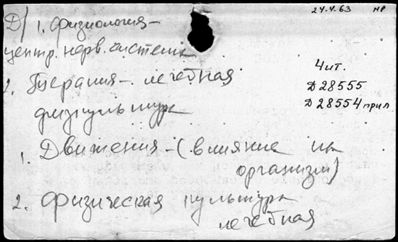 24.4.63 НР
Д/ 1. Физиология-
центр. нерв. система
2. Терапия - лечебная
физкультура
Чит.
Д 28555
Д 28554 прил
1. Движения - (влияние на
организм)
2. Физическая культура
лечебная